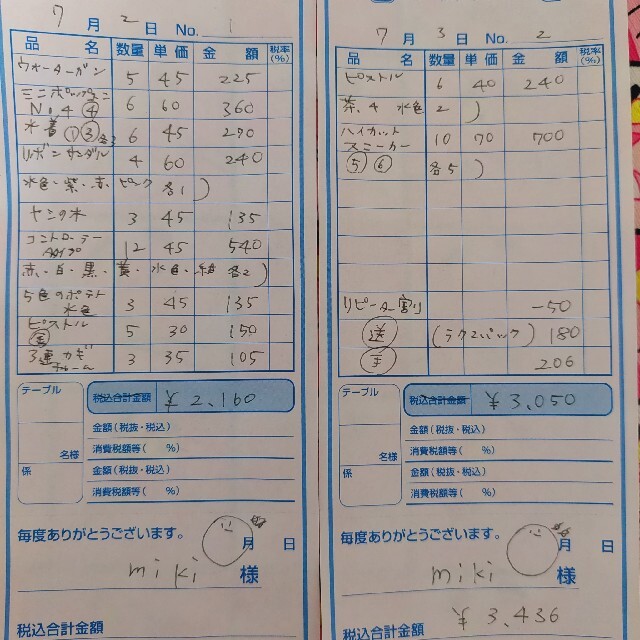 7月 2日 No. 1
品名 数量 単価 金額 税率(%)
ウォーターガン 5 45 225
No.4 ④ 6 60 360
水着①③ 各3 6 45 270
リボンサンダル 4 60 240
水色・紫・赤 ピンク 各1)
ヤシの木 3 45 135
コントローラー Aタイプ 12 45 540
赤・白・黒・黄・水色・紺 各2)
5色のポテト 水色 3 45 135
ピストル 5 30 150
3連カギ チャーム 3 35 105
テーブル
名様
係
税込合計金額 ¥2,160
金額(税抜・税込)
消費税額等( %)
金額(税抜・税込)
消費税額等( %)
毎度ありがとうございます。
月 日
miki 様
税込合計金額
7月 3日 No. 2
品名 数量 単価 金額 税率(%)
ピストル 6 40 240
茶、4 水色 2 )
ハイカット スニーカー 10 70 700
⑤ ⑥ 各5 )
リピーター割り -50
送 (ラクマパック) 180
手 206
テーブル
名様
係
税込合計金額 ¥3,050
金額(税抜・税込)
消費税額等( %)
金額(税抜・税込)
消費税額等( %)
毎度ありがとうございます。
月 日
miki 様
税込合計金額 ¥3,436